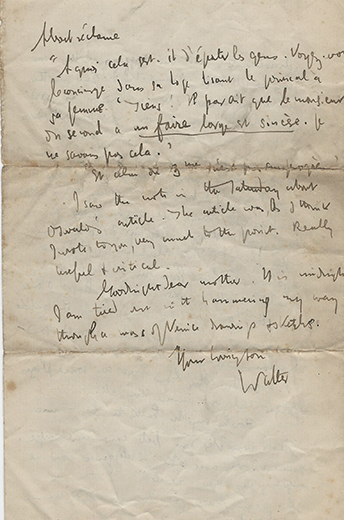 About réclame
"A quoi cela sert-il d'épater les gens. Voyez-vo
le concierge dans sa loge lisant le journal à
sa femme. "Tiens! Il parait que le monsieur
du second a un faire large et sincère. Je
ne savais pas cela."
Et
I saw the note in the Saturday about
Oswald's article. The article was as I think
I wrote to you very much to the point. Really
useful & critical.
Goodnight dear mother. It is midnight
I am tired out hammering my way
through a mass of Venice drawings &
Your loving son
Walter